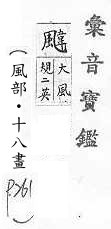 彙音寶鑑
颹
大風
規二英
(風部・十八畫)